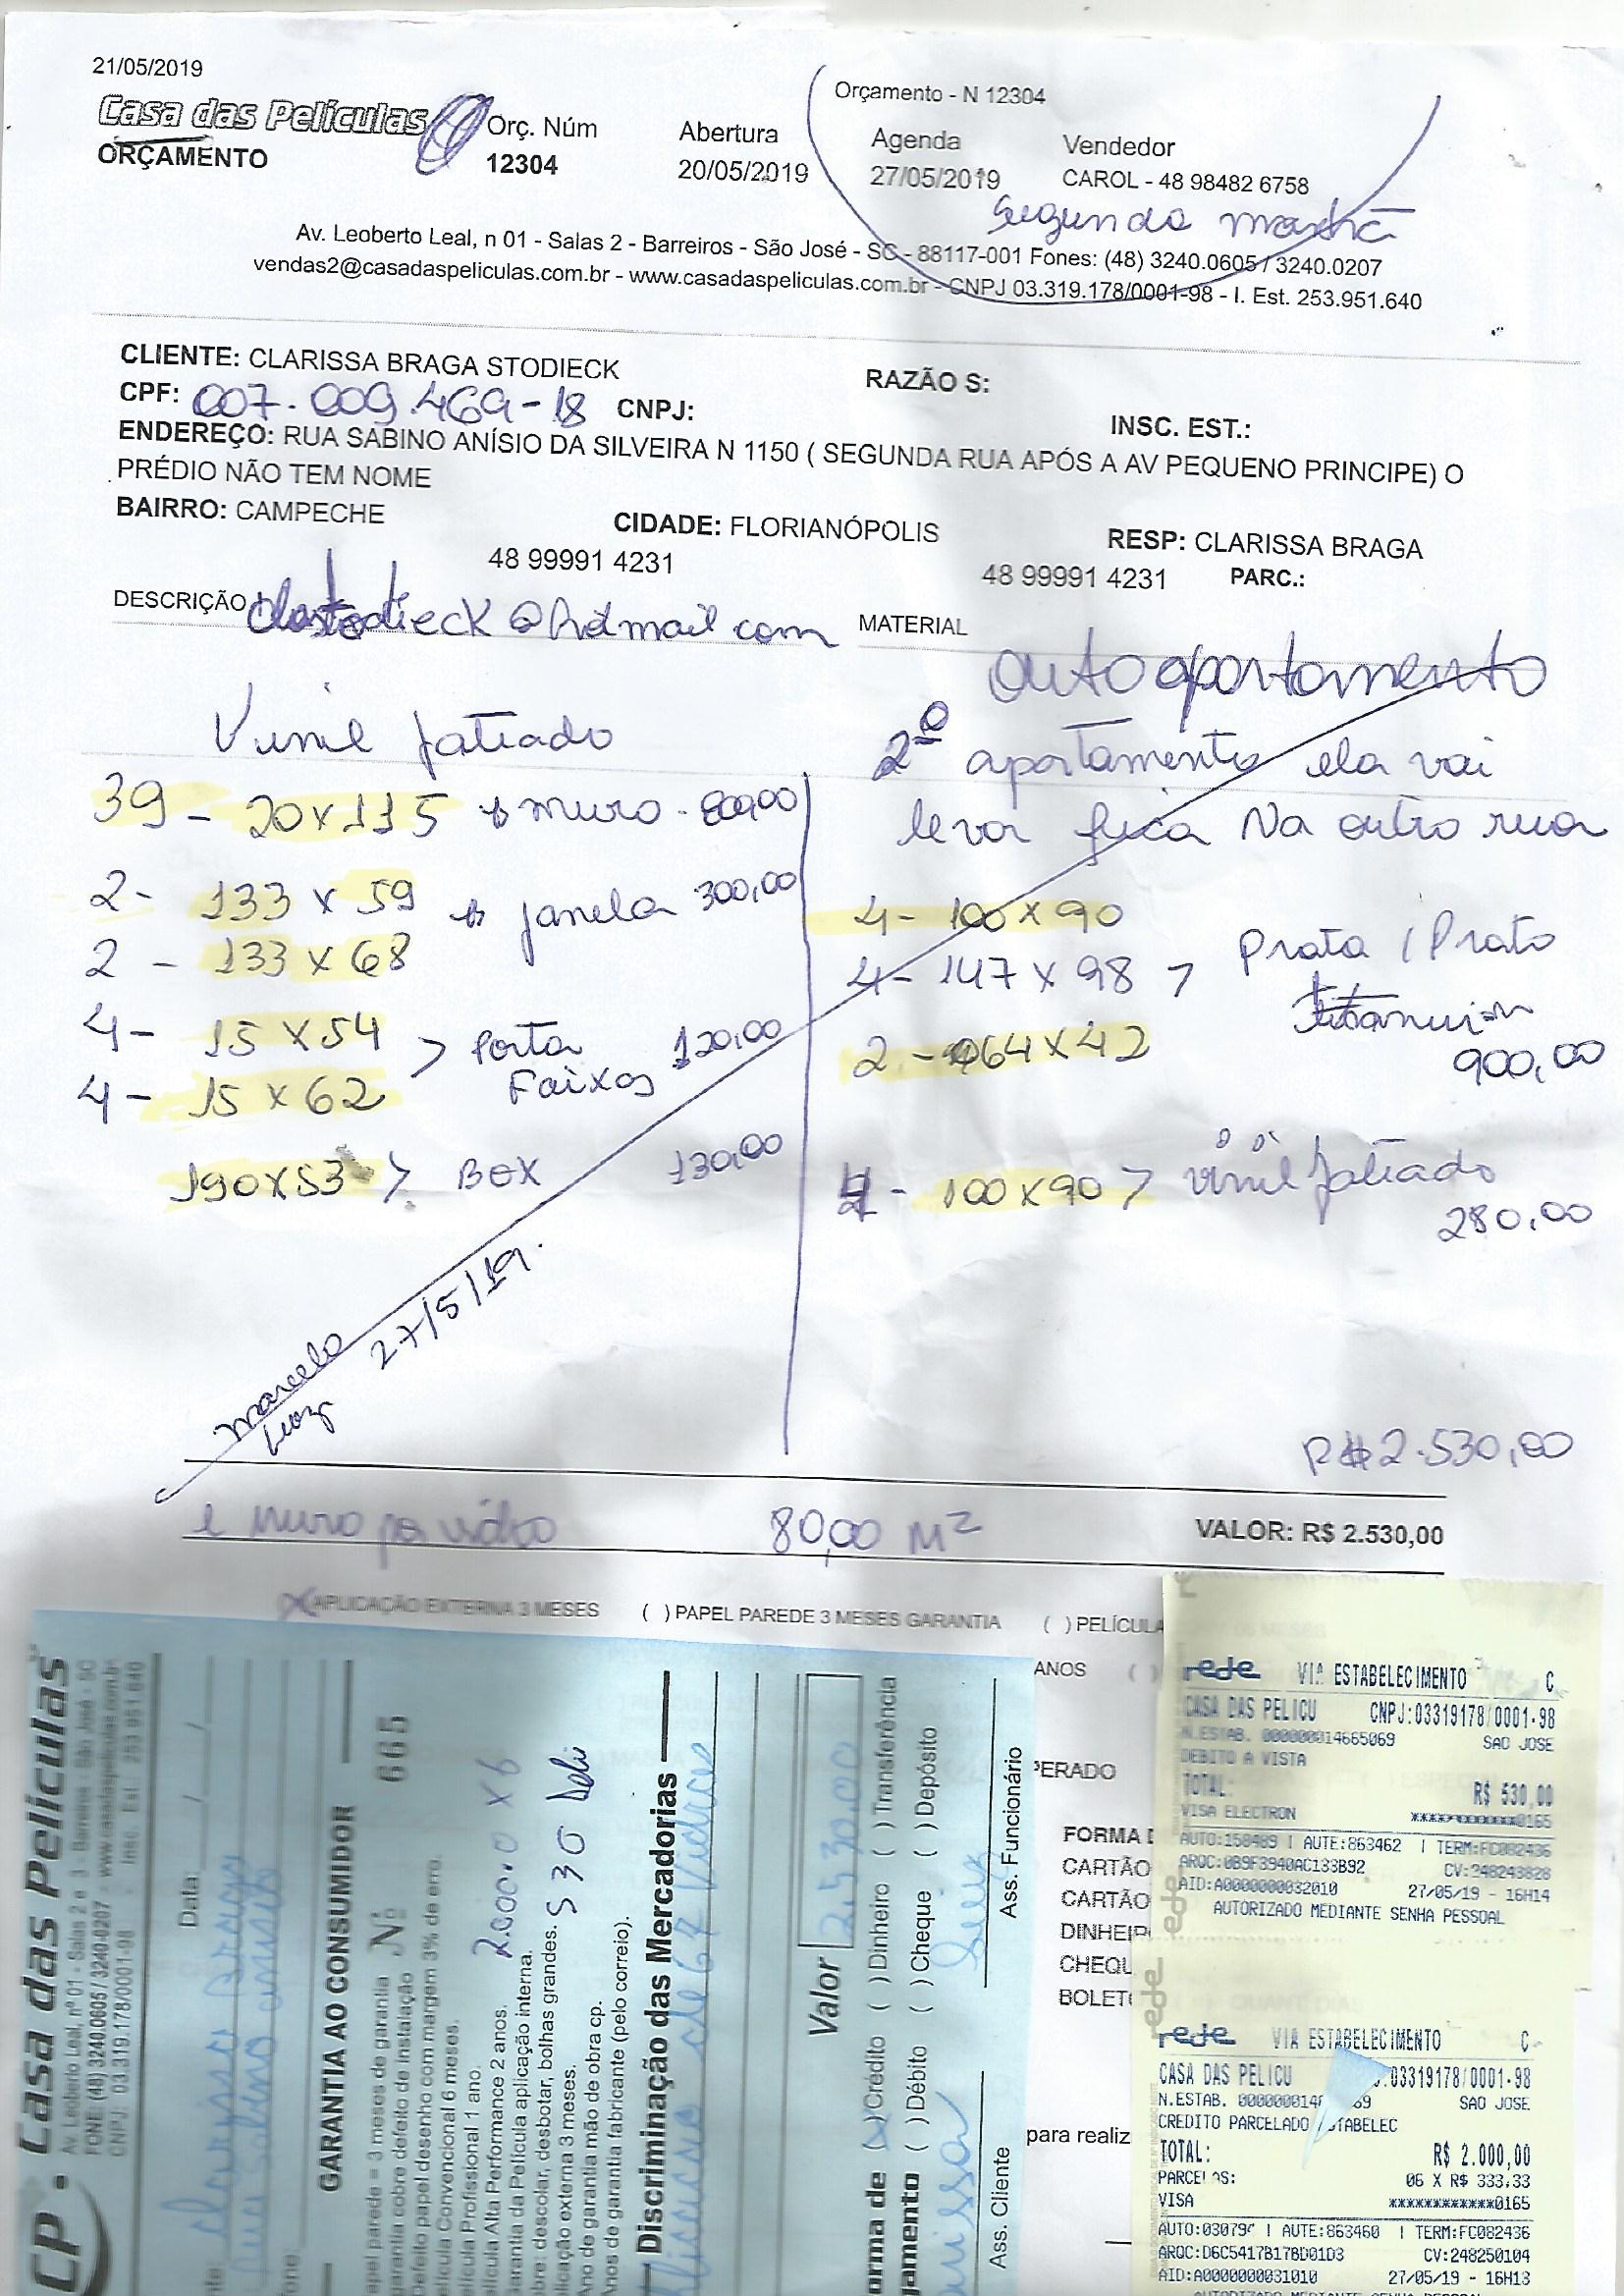 21/05/2019
Orçamento - N 12304
Casa das Películas
ORÇAMENTO
Orç. Núm
12304
Abertura
20/05/2019
Agenda
27/05/2019
Vendedor
CAROL - 48 98482 6758
Segunda manhã
Av. Leoberto Leal, n 01 - Salas 2 - Barreiros - São José - SC - 88117-001 Fones: (48) 3240.0605 / 3240.0207
vendas2@casadaspeliculas.com.br - www.casadaspeliculas.com.br - CNPJ 03.319.178/0001-98 - I. Est. 253.951.640
CLIENTE: CLARISSA BRAGA STODIECK
RAZÃO S:
CPF: 007.009.469-18 CNPJ:
INSC. EST.:
ENDEREÇO: RUA SABINO ANÍSIO DA SILVEIRA N 1150 ( SEGUNDA RUA APÓS A AV PEQUENO PRINCIPE) O
PRÉDIO NÃO TEM NOME
BAIRRO: CAMPECHE
CIDADE: FLORIANÓPOLIS
RESP: CLARISSA BRAGA
48 99991 4231
48 99991 4231 PARC.:
DESCRIÇÃO
@hotmail com
MATERIAL
Vinil jatiado
39 - 20x115 muro - 800,00
2- 133 x 59 janela 300,00
2 - 133 x 68
4- 15 x 54 > Porta 120,00
4- 15 x 62 Faixas
190x53 > BOX 130,00
Marcelo
27/5/19.
outo apartamento
2º apartamento ela vai
levar fica Na outro rua
4- 100 x 90
4- 147 x 98 > Prata / Prato
2 - 64x42 titanuim
900,00
- 100x90 > vinil jatiado
280,00
R$ 2.530,00
muro por vidro 80,00 M²
VALOR: R$ 2.530,00
APLICAÇÃO EXTERNA 3 MESES ( ) PAPEL PAREDE 3 MESES GARANTIA ( ) PELÍCULA
ANOS ( )
PERADO
FORMA D
CARTÃO
CARTÃO
DINHEIR
CHEQU
BOLET
para realiz
CP. Casa das Películas
Av. Leoberto Leal, nº 01 - Salas 2 e 3 Barreiros - São José - SC
FONE: (48) 3240.0605 / 3240-0207 - www.casadaspeliculas.com.br
CNPJ 03.319.178/0001-98 - Insc. Est. 253.951.640
Data: / /
Clarissa Braga
GARANTIA AO CONSUMIDOR Nº 665
apel parede = 3 meses de garantia
garantia cobre defeito de instalação
Defeito papel desenho com margem 3% de erro.
elícula Convencional 6 meses.
lícula Profissional 1 ano
elícula Alta Performance 2 anos. 2.000,0 x 6
arantia da Película aplicação interna.
bre: descolar, desbotar, bolhas grandes. 530
licação externa 3 meses.
Ano de garantia mão de obra cp.
nos de garantia fabricante (pelo correio).
Discriminação das Mercadorias
de 67 Vidros
Valor 2.530.00
orma de (x) Crédito ( ) Dinheiro ( ) Transferência
gamento ( ) Débito ( ) Cheque ( ) Depósito
Ass. Cliente
Ass. Funcionário
rede VIA ESTABELECIMENTO C
CASA DAS PELICU CNPJ:03319178/0001-98
N.ESTAB. 000000014665069 SAO JOSE
DEBITO A VISTA
TOTAL: R$ 530,00
VISA ELECTRON ************0165
AUTO:158489 | AUTE:863462 | TERM:FC082436
ARQC:0B9F3940AC133B92 CV:248243828
AID:A0000000032010 27/05/19 - 16H14
AUTORIZADO MEDIANTE SENHA PESSOAL
rede rede
rede VIA ESTABELECIMENTO C
CASA DAS PELICU :03319178/0001-98
N.ESTAB. SAO JOSE
CREDITO PARCELADO ESTABELEC
TOTAL: R$ 2.000,00
PARCELAS: 06 X R$ 333,33
VISA ************0165
AUTO:03079 | AUTE:863460 | TERM:FC082436
ARQC:D6C5417B17BD01D3 CV:248250104
AID:A0000000031010 27/05/19 - 16H13
AUTORIZADO MEDIANTE SENHA PESSOAL